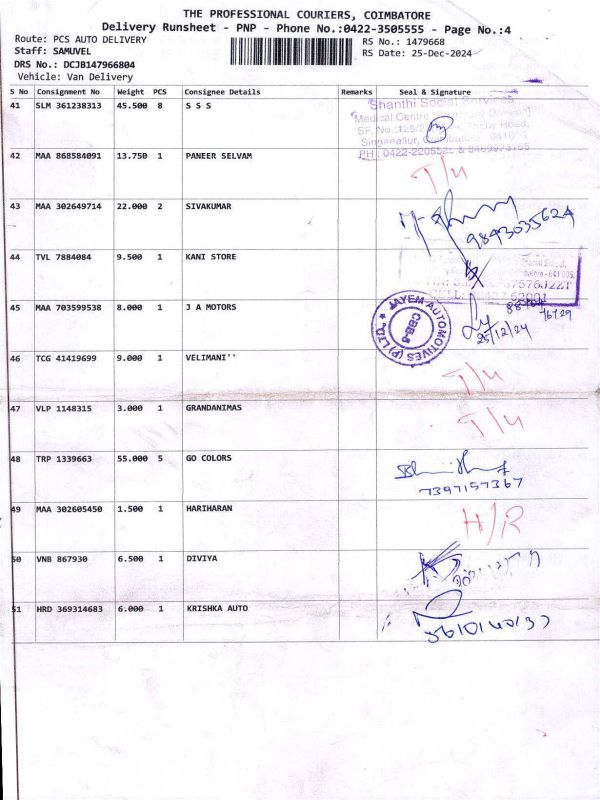 THE PROFESSIONAL COURIERS, COIMBATORE
Delivery Runsheet - PNP - Phone No.:0422-3505555 - Page No.:4
Route: PCS AUTO DELIVERY
RS No.: 1479668
Staff: SAMUVEL
RS Date: 25-Dec-2024
DRS No.: DCJB147966804
Vehicle: Van Delivery
S No Consignment No Weight PCS Consignee Details Remarks Seal & Signature
41 SLM 361238313 45.500 8 S S S
Shanthi Social Services
Medical Centre
Singanallur, Coimbatore
42 MAA 868584091 13.750 1 PANEER SELVAM T/U
43 MAA 302649714 22.000 2 SIVAKUMAR
9843035624
44 TVL 7884084 9.500 1 KANI STORE
45 MAA 703599538 8.000 1 J A MOTORS
JAYEM AUTOMOTIVES (P) LTD.
CBE-5
25/12/24
46 TCG 41419699 9.000 1 VELIMANI'' T/U
47 VLP 1148315 3.000 1 GRANDANIMAS T/U
48 TRP 1339663 55.000 5 GO COLORS
7397157367
49 MAA 302605450 1.500 1 HARIHARAN H/R
50 VNB 867930 6.500 1 DIVIYA
51 HRD 369314683 6.000 1 KRISHKA AUTO